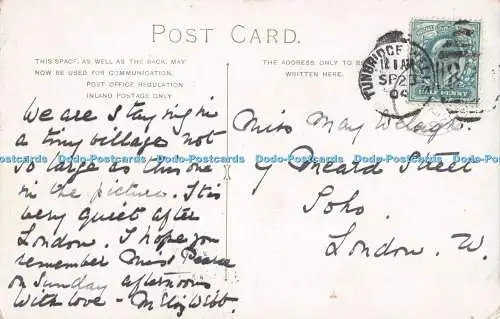 POST CARD.
THIS SPACE, AS WELL AS THE BACK, MAY
NOW BE USED FOR COMMUNICATION.
POST OFFICE REGULATION
INLAND POSTAGE ONLY
THE ADDRESS ONLY TO BE
WRITTEN HERE.
TUNBRIDGE
SP 23
HALF PENNY
We are staying in
a tiny village not
so large as this one
in the picture. It is
very quiet after
London. I hope you
remember Miss Pearce
on Sunday afternoons
With love - M Webb.
Miss May
9 Meard Street
Soho.
London. W.
Dodo-Postcards Dodo-Postcards Dodo-Postcards Dodo-Postcards Dodo-Postcards